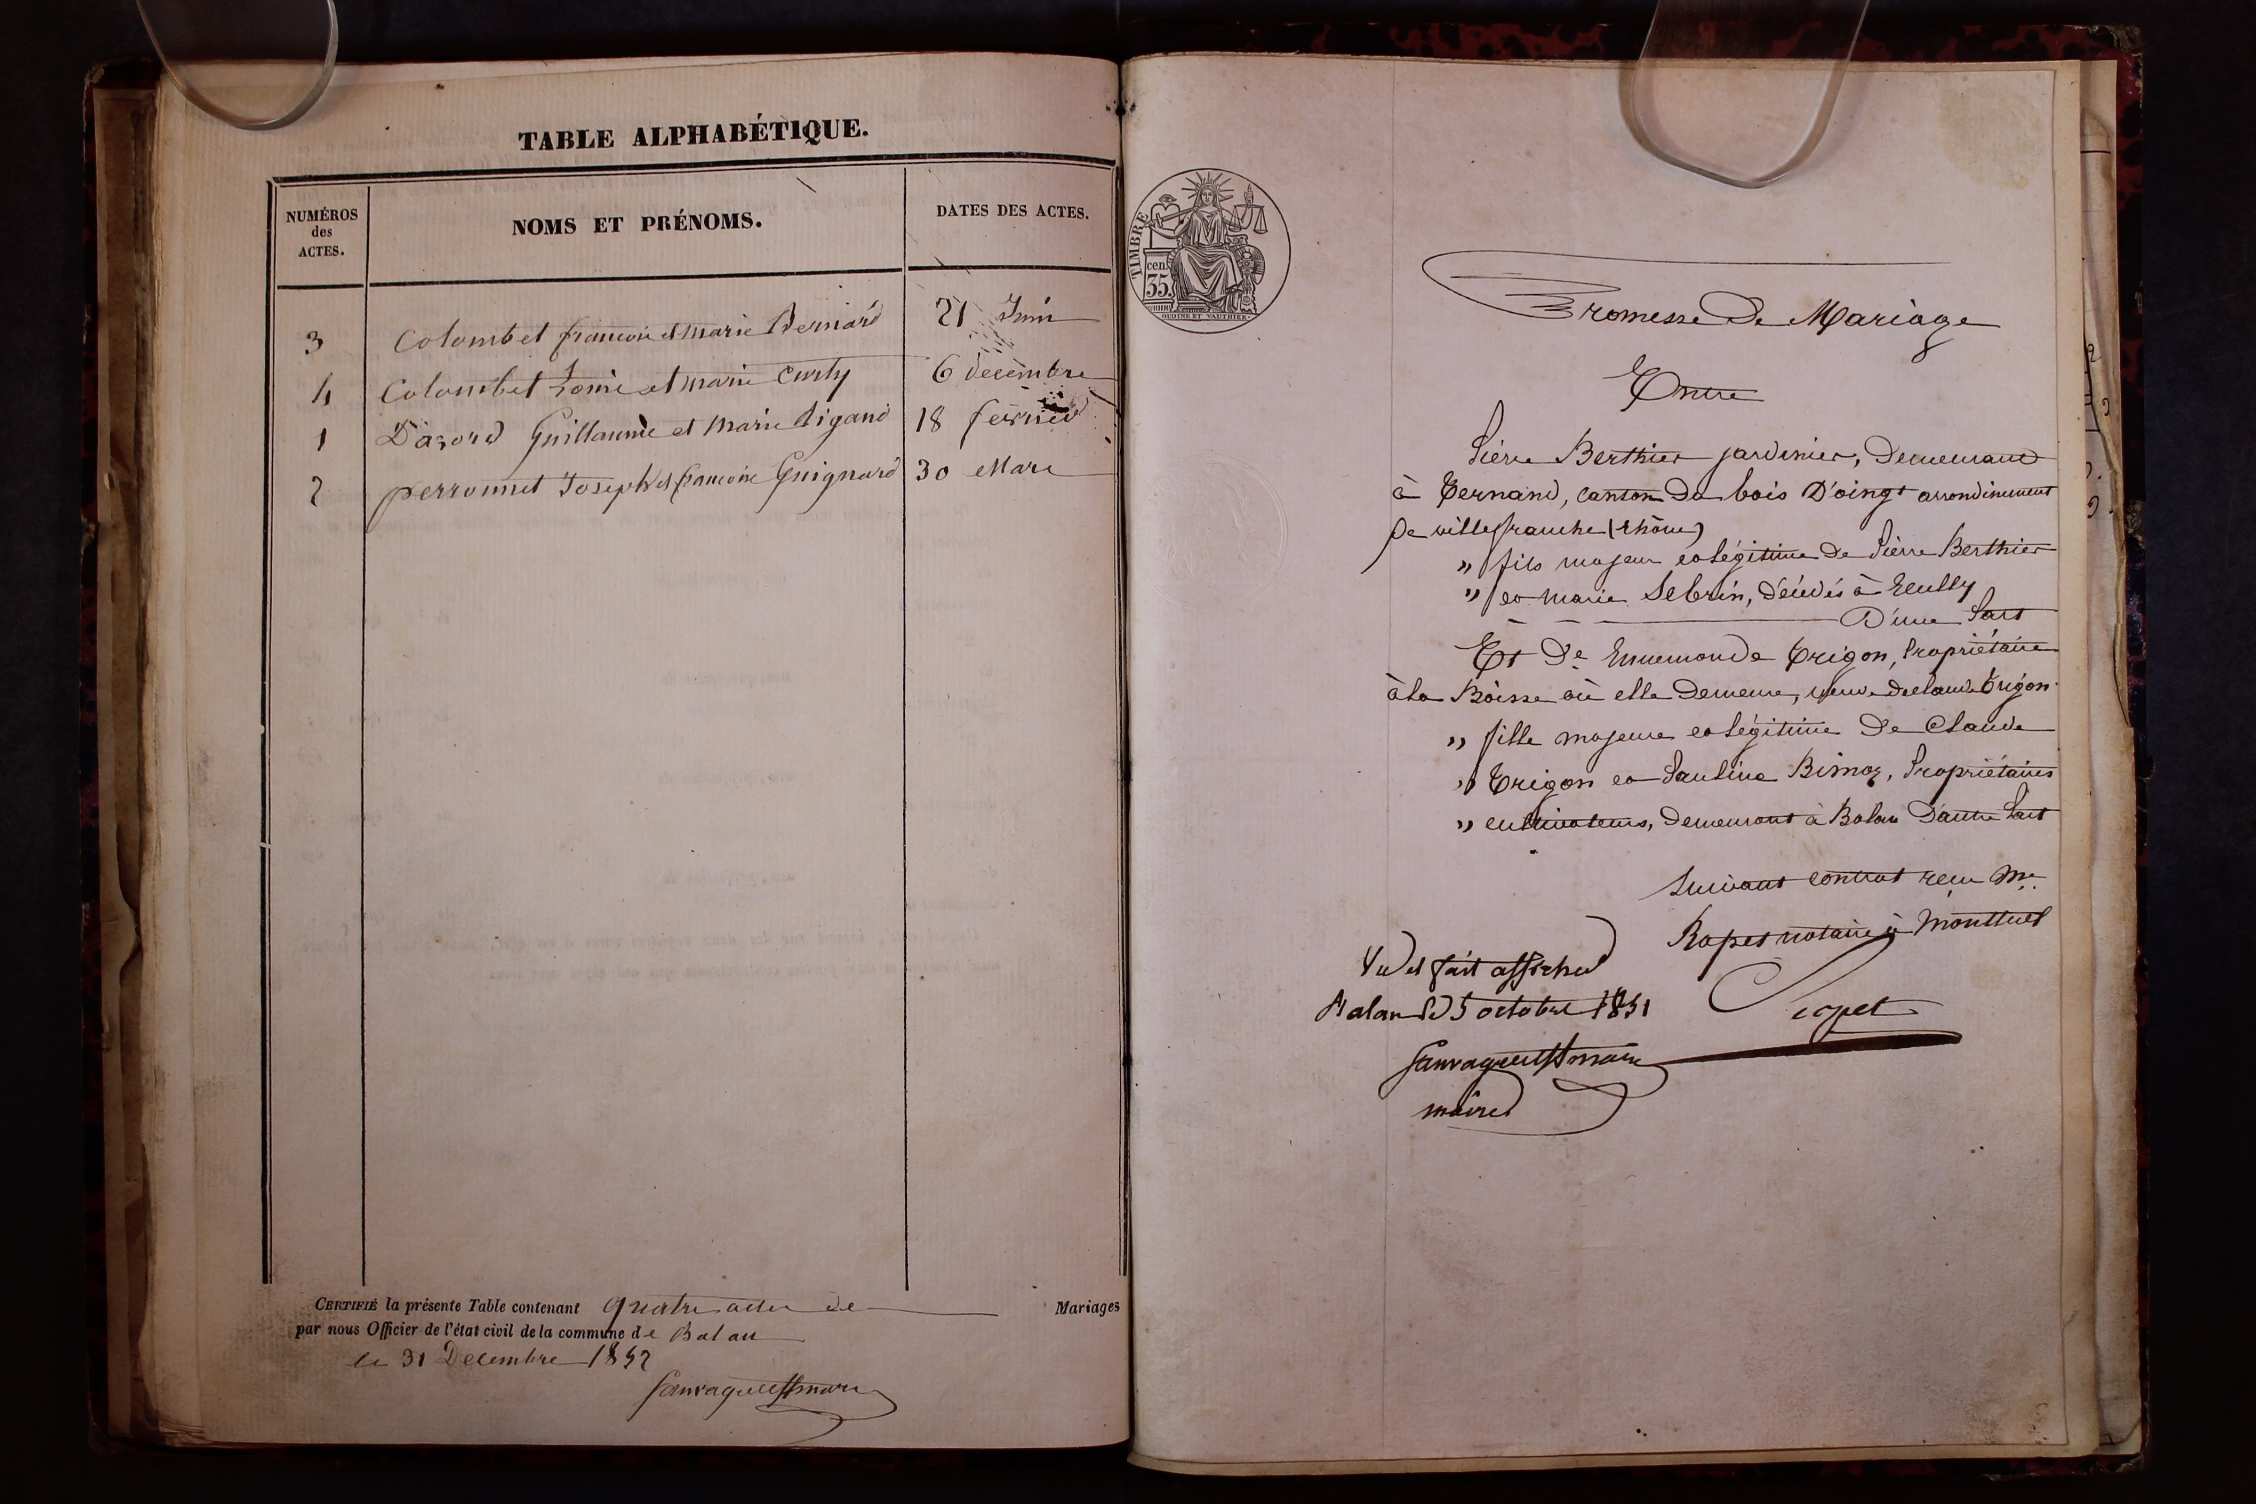 TABLE ALPHABÉTIQUE.
NUMÉROS
des
ACTES.
NOMS ET PRÉNOMS.
DATES DES ACTES.
3 Colombet françois et marie Bernard 21 Juin
4 Colombet Louis et marie Curty 6 decembre
1 Dazord Guillaume et Marie Rigand 18 fevrier
2 perronnet Joseph et françoise Guignard 30 Mars
CERTIFIÉ la présente Table contenant quatre actes de Mariages
par nous Officier de l'état civil de la commune de Balan
le 31 Decembre 1852
TIMBRE
35 cen.
OUDINE ET VAUTHIER
Promesse de Mariage
Entre
Pierre Berthier jardinier, demeurant
à Ternand, canton du bois D'oingt arrondissement
de villefranche (Rhône)
" fils majeur et légitime de Pierre Berthier
" et marie Sebrin, décédés à Ecully
D'une Part
Et De Ennemonde Trigon, Propriétaire
à la Boisse où elle demeure, veuve de claude Trigon
" fille majeure et légitime de Claude
" Trigon et Pauline Bimoz, Propriétaires
" cultivateurs, demeurant à Balan D'autre Part
Suivant contrat reçu Me
Ropet notaire à Montluel
Vu et fait afficher
Balan le 5 octobre 1851
maire